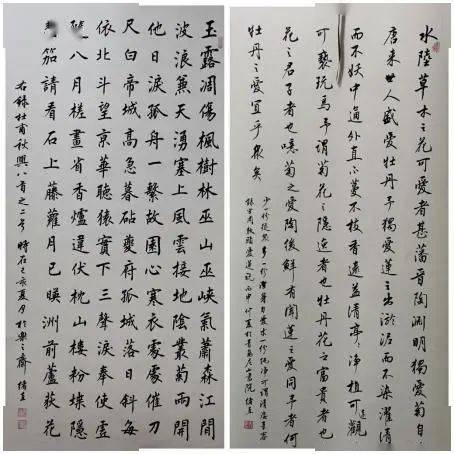 水陸草木之花可愛者甚蕃晉陶淵明獨愛菊自
唐来世人盛愛牡丹予獨愛蓮之出淤泥而不染濯清
而不妖中通外直不蔓不枝香遠益清亭亭淨植可遠觀
可褻玩焉予謂菊花之隱逸者也牡丹花之富貴者也
花之君子者也噫菊之愛陶後鮮有聞蓮之愛同予者何
牡丹之愛宜乎衆矣
玉露凋傷楓樹林巫山巫峽氣蕭森江間
波浪兼天湧塞上風雲接地陰叢菊兩開
他日淚孤舟一繫故園心寒衣處處催刀
尺白帝城高急暮砧夔府孤城落日斜每
依北斗望京華聽猿實下三聲淚奉使虛
八月槎畫省香爐違伏枕山樓粉堞隱
笳請看石上藤蘿月已映洲前蘆荻花
右錄杜甫秋興八首之二 時在己亥夏月於樂之齋 緒立